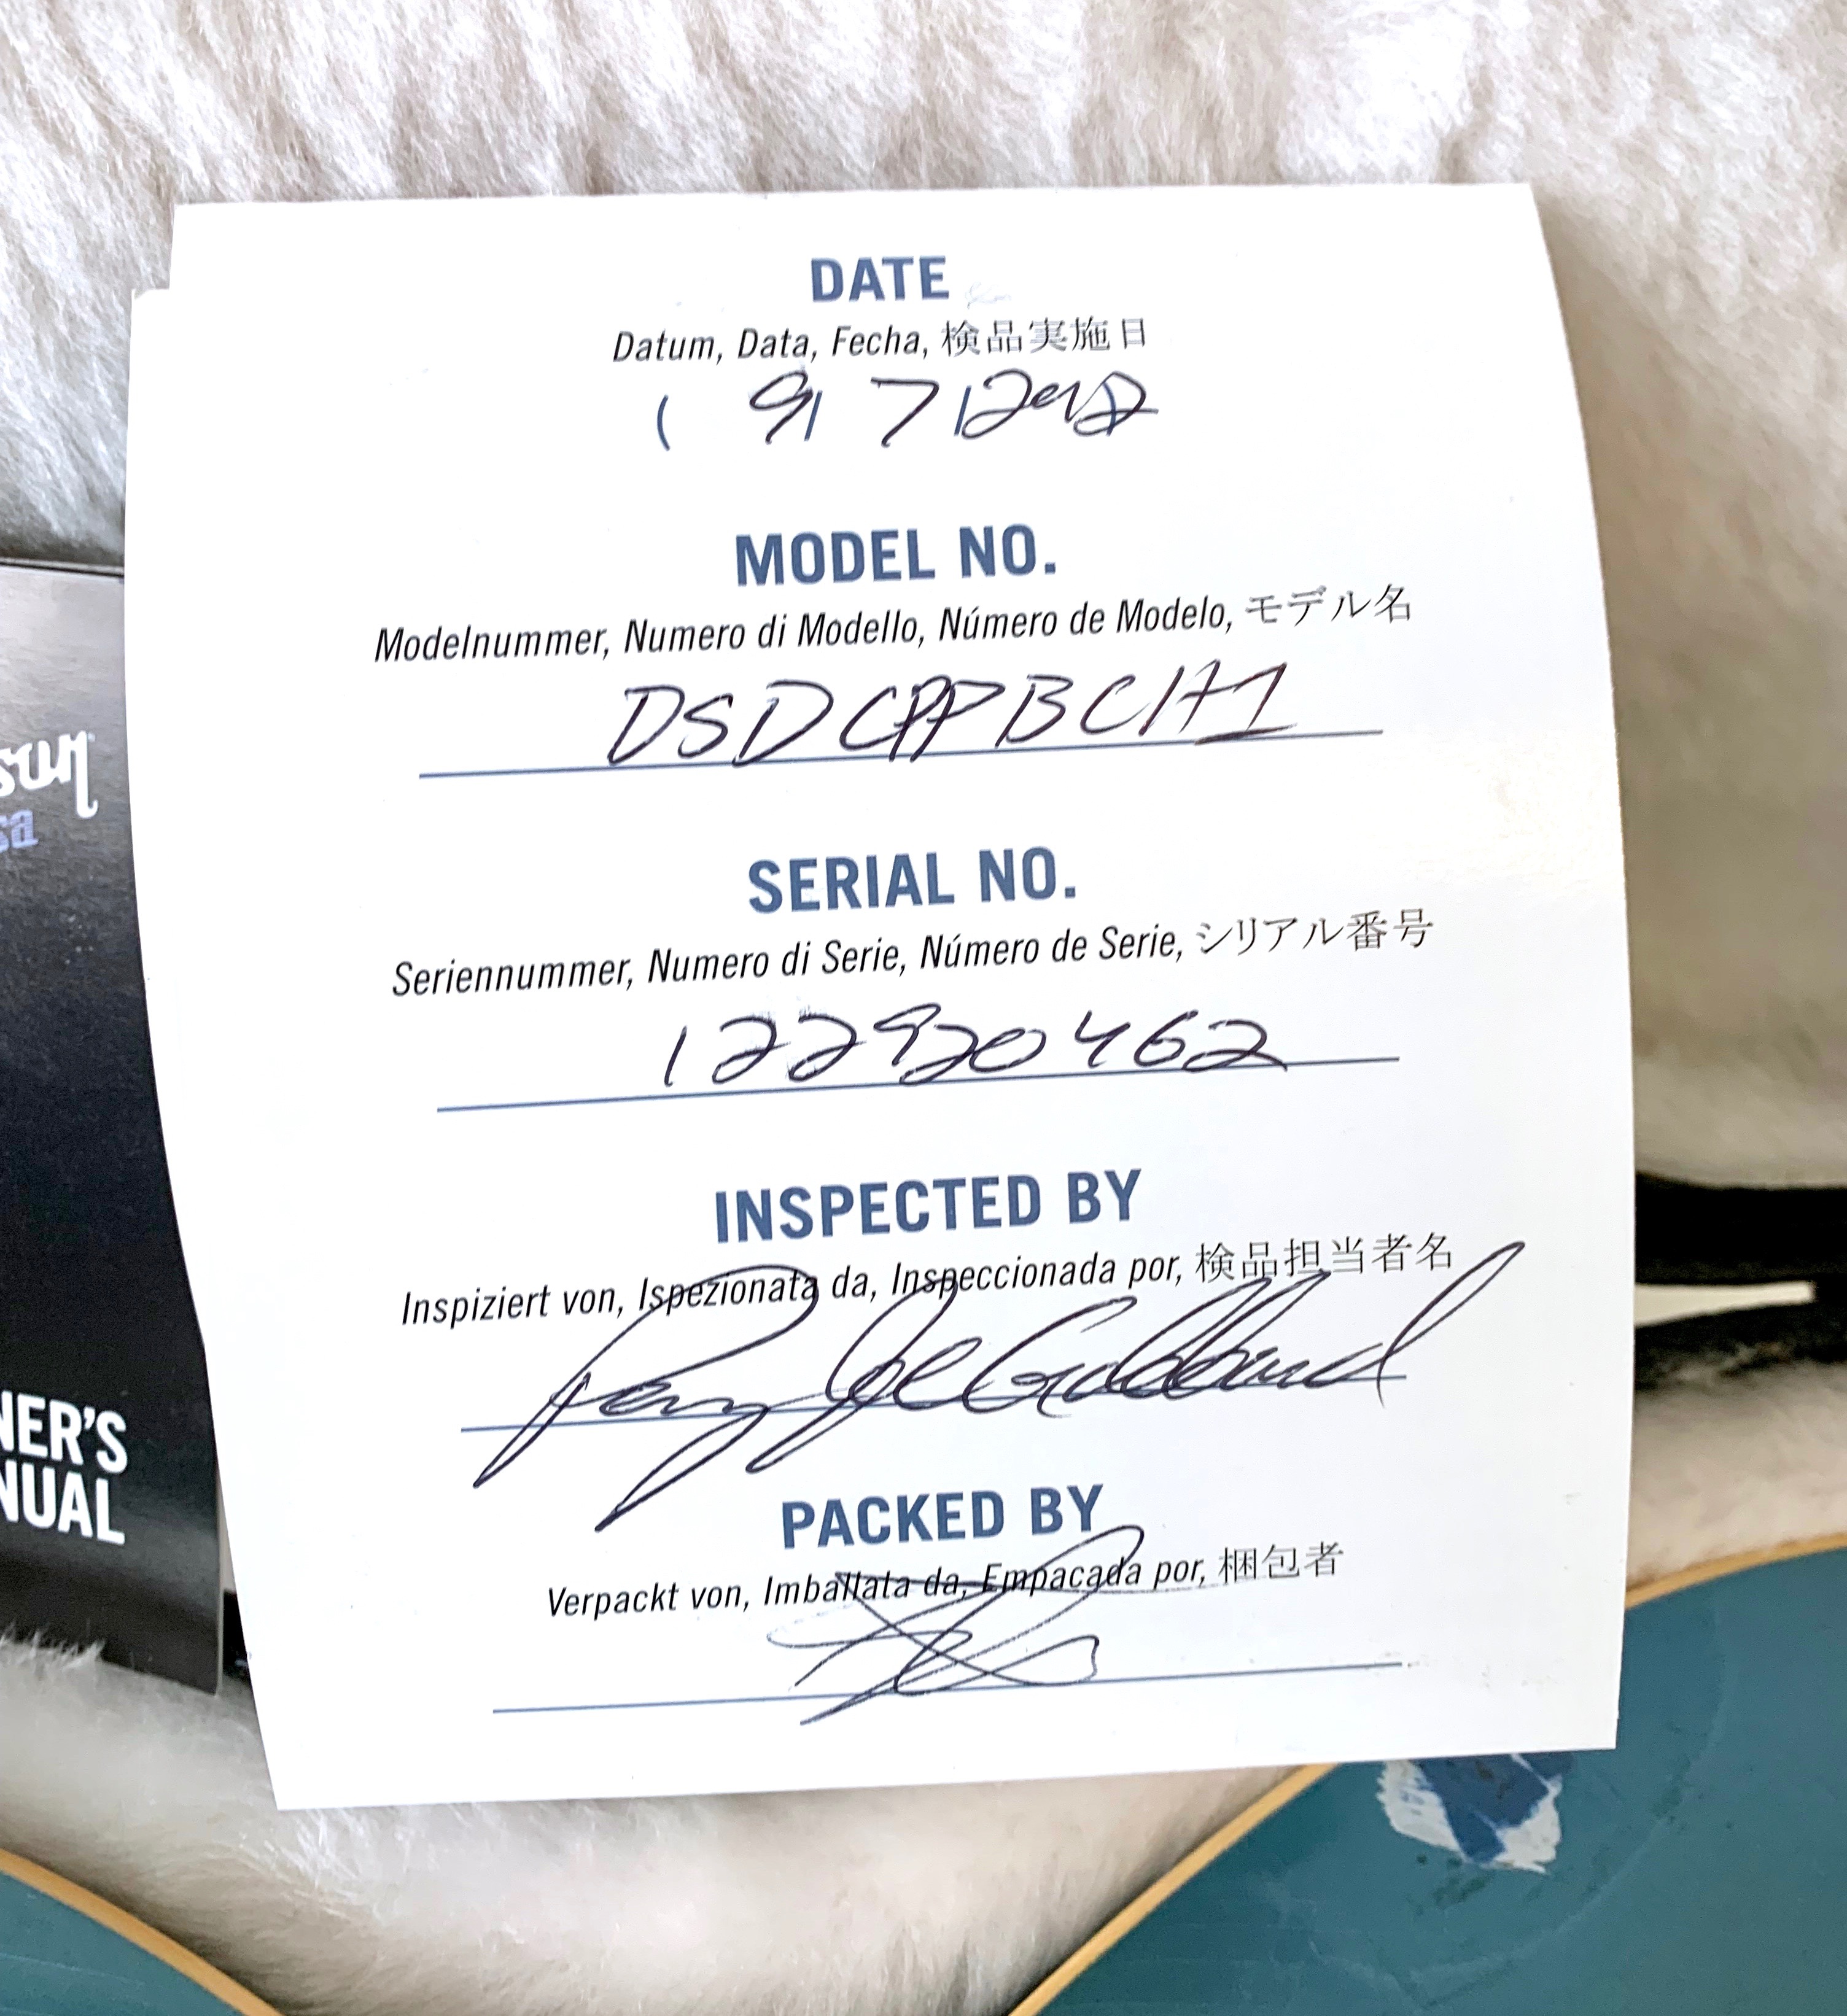 DATE
Datum, Data, Fecha, 検品実施日
9/ 7/2012
MODEL NO.
Modelnummer, Numero di Modello, Número de Modelo, モデル名
DSDCPPBCH1
SERIAL NO.
Seriennummer, Numero di Serie, Número de Serie, シリアル番号
122920462
INSPECTED BY
Inspiziert von, Ispezionata da, Inspeccionada por, 検品担当者名
PACKED BY
Verpackt von, Imballata da, Empacada por, 梱包者
NER'S
NUAL